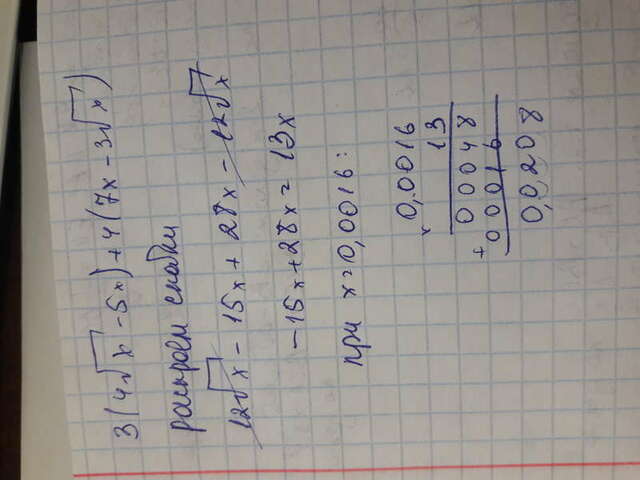 3(4√x - 5x) + 4(7x - 3√x)
раскроем скобки
12√x - 15x + 28x - 12√x
-15x + 28x = 13x
при x = 0,0016:
0,0016
× 13
00048
+ 00016
0,0208